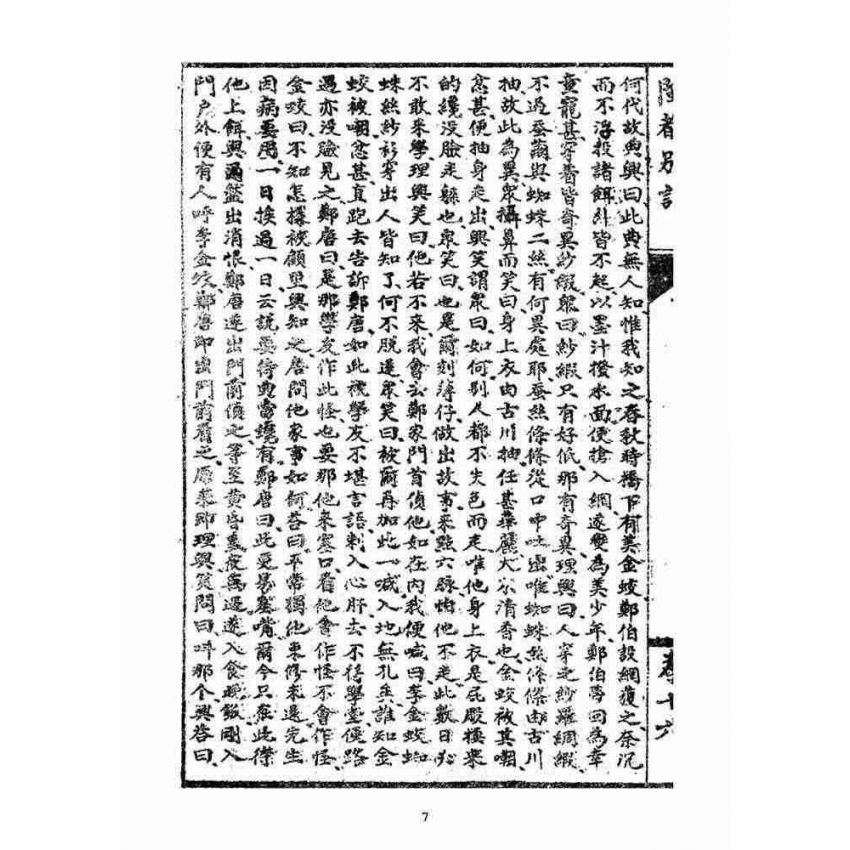 何代故典興曰此典無人知惟我知之春秋時橋下有美金蛟鄭伯設網復之奈沉
而不浮投諸餌糾皆不起以墨汁撥水面便搶入網遂變為美少年鄭伯帶回為幸
童寵甚穿著皆奇異紗緞眾曰紗緞只有好低那有奇異理興曰人穿之紗羅綢緞
不過蚕繭與蜘蛛二絲有何異處耶蚕絲條條從口中吐出唯蜘蛛絲條條由古川
抽故此為異眾攝鼻而笑曰身上衣由古川抽任甚華麗大不清香也金蛟被其嘲
忿甚便抽身走出興笑謂眾曰如何別人都不失色而走唯他身上衣是屁股機樂
的纔没臉走躲也眾笑曰也是爾刻薄仔做出故事來點六脉怕他不走此數日必
不敢來學理興笑曰他若不來我會去鄭家門首偵他如在內我便喊曰李金蛟蜘
蛛絲紗衫穿出人皆知了何不脱還眾笑曰被爾再加此一喊入地無孔矣誰知金
蛟被嘲忿甚直跑去告訴鄭唐如此被學友不堪言語刺入心肝去不得學堂便路
遇亦没臉見之鄭唐曰是那學友作此怪也要那他來塞口看他會作怪不會作怪
金蛟曰不知怎樣被顧里興知之唐問他家事如何答曰平常獨他束修未還先生
因病要用一日挨過一日云説要待典當纔有鄭唐曰此更易塞嘴爾今只在此僚
他上餌與過籃出消恨鄭唐遂出門前偵之等至黄昏重夜無遲遂入食晚飯剛入
門户外便有人呼李金蛟鄭唐即出門前看之原來即理興笑問曰呼那个興答曰
卷十六
7